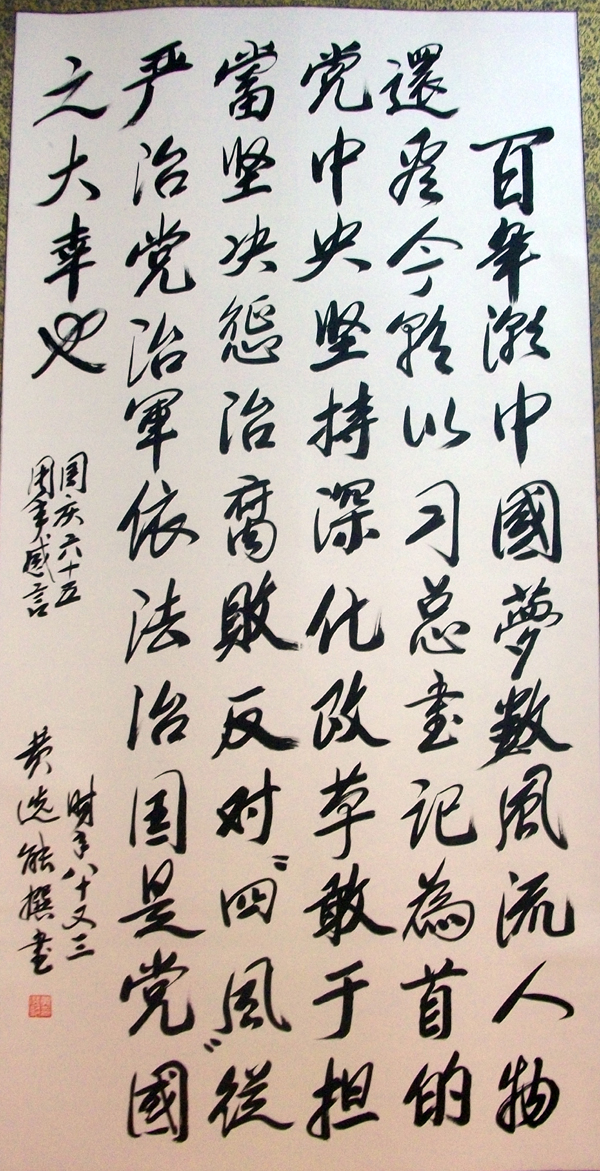 百年潮中國夢數風流人物
還看今朝以习总書记為首的
党中央坚持深化改革敢于担
當坚决惩治腐敗反对“四風”從
严治党治軍依法治国是党國
之大幸也
国庆六十五
周年感言
时年八十又三
黄选能撰書